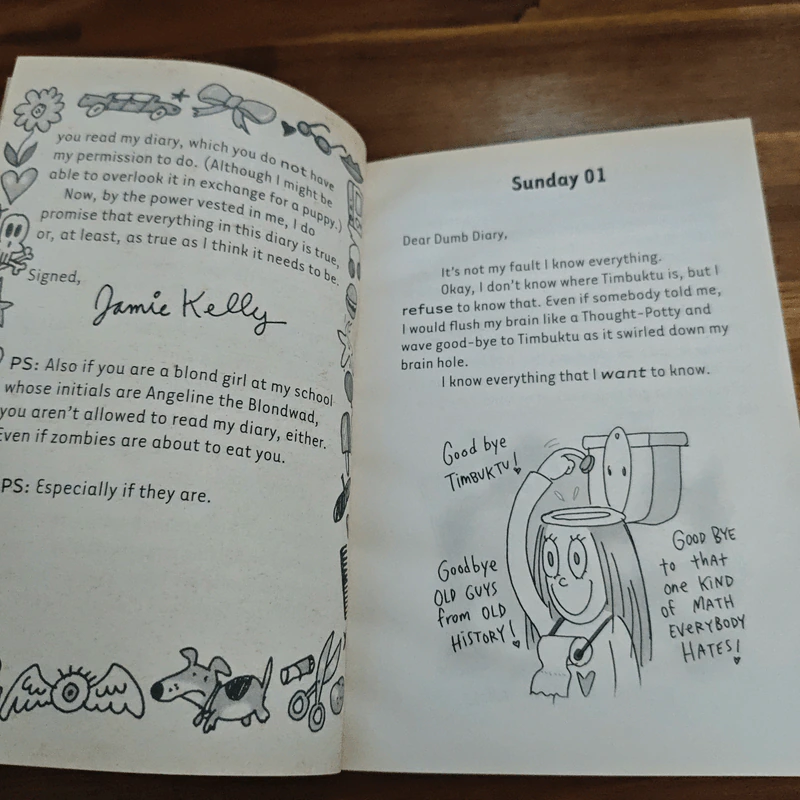 you read my diary, which you do not have
my permission to do. (Although I might be
able to overlook it in exchange for a puppy.)
Now, by the power vested in me, I do
promise that everything in this diary is true,
or, at least, as true as I think it needs to be.
Signed,
Jamie Kelly
PS: Also if you are a blond girl at my school
whose initials are Angeline the Blondwad,
you aren't allowed to read my diary, either.
Even if zombies are about to eat you.
PS: Especially if they are.
Sunday 01
Dear Dumb Diary,
It's not my fault I know everything.
Okay, I don't know where Timbuktu is, but I
refuse to know that. Even if somebody told me,
I would flush my brain like a Thought-Potty and
wave good-bye to Timbuktu as it swirled down my
brain hole.
I know everything that I want to know.
Good bye
TIMBUKTU!
Goodbye
OLD GUYS
from OLD
HISTORY!
GOOD BYE
to thAt
one KIND
of MATH
EVERYBODY
HATES!